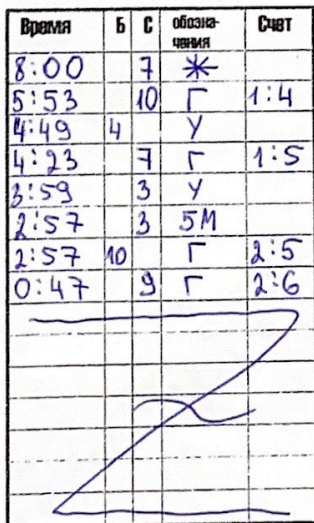 Время Б С обозначения Счет
8:00 7 Ж
5:53 10 Г 1:4
4:49 4 У
4:23 7 Г 1:5
3:59 3 У
2:57 3 5М
2:57 10 Г 2:5
0:47 9 Г 2:6